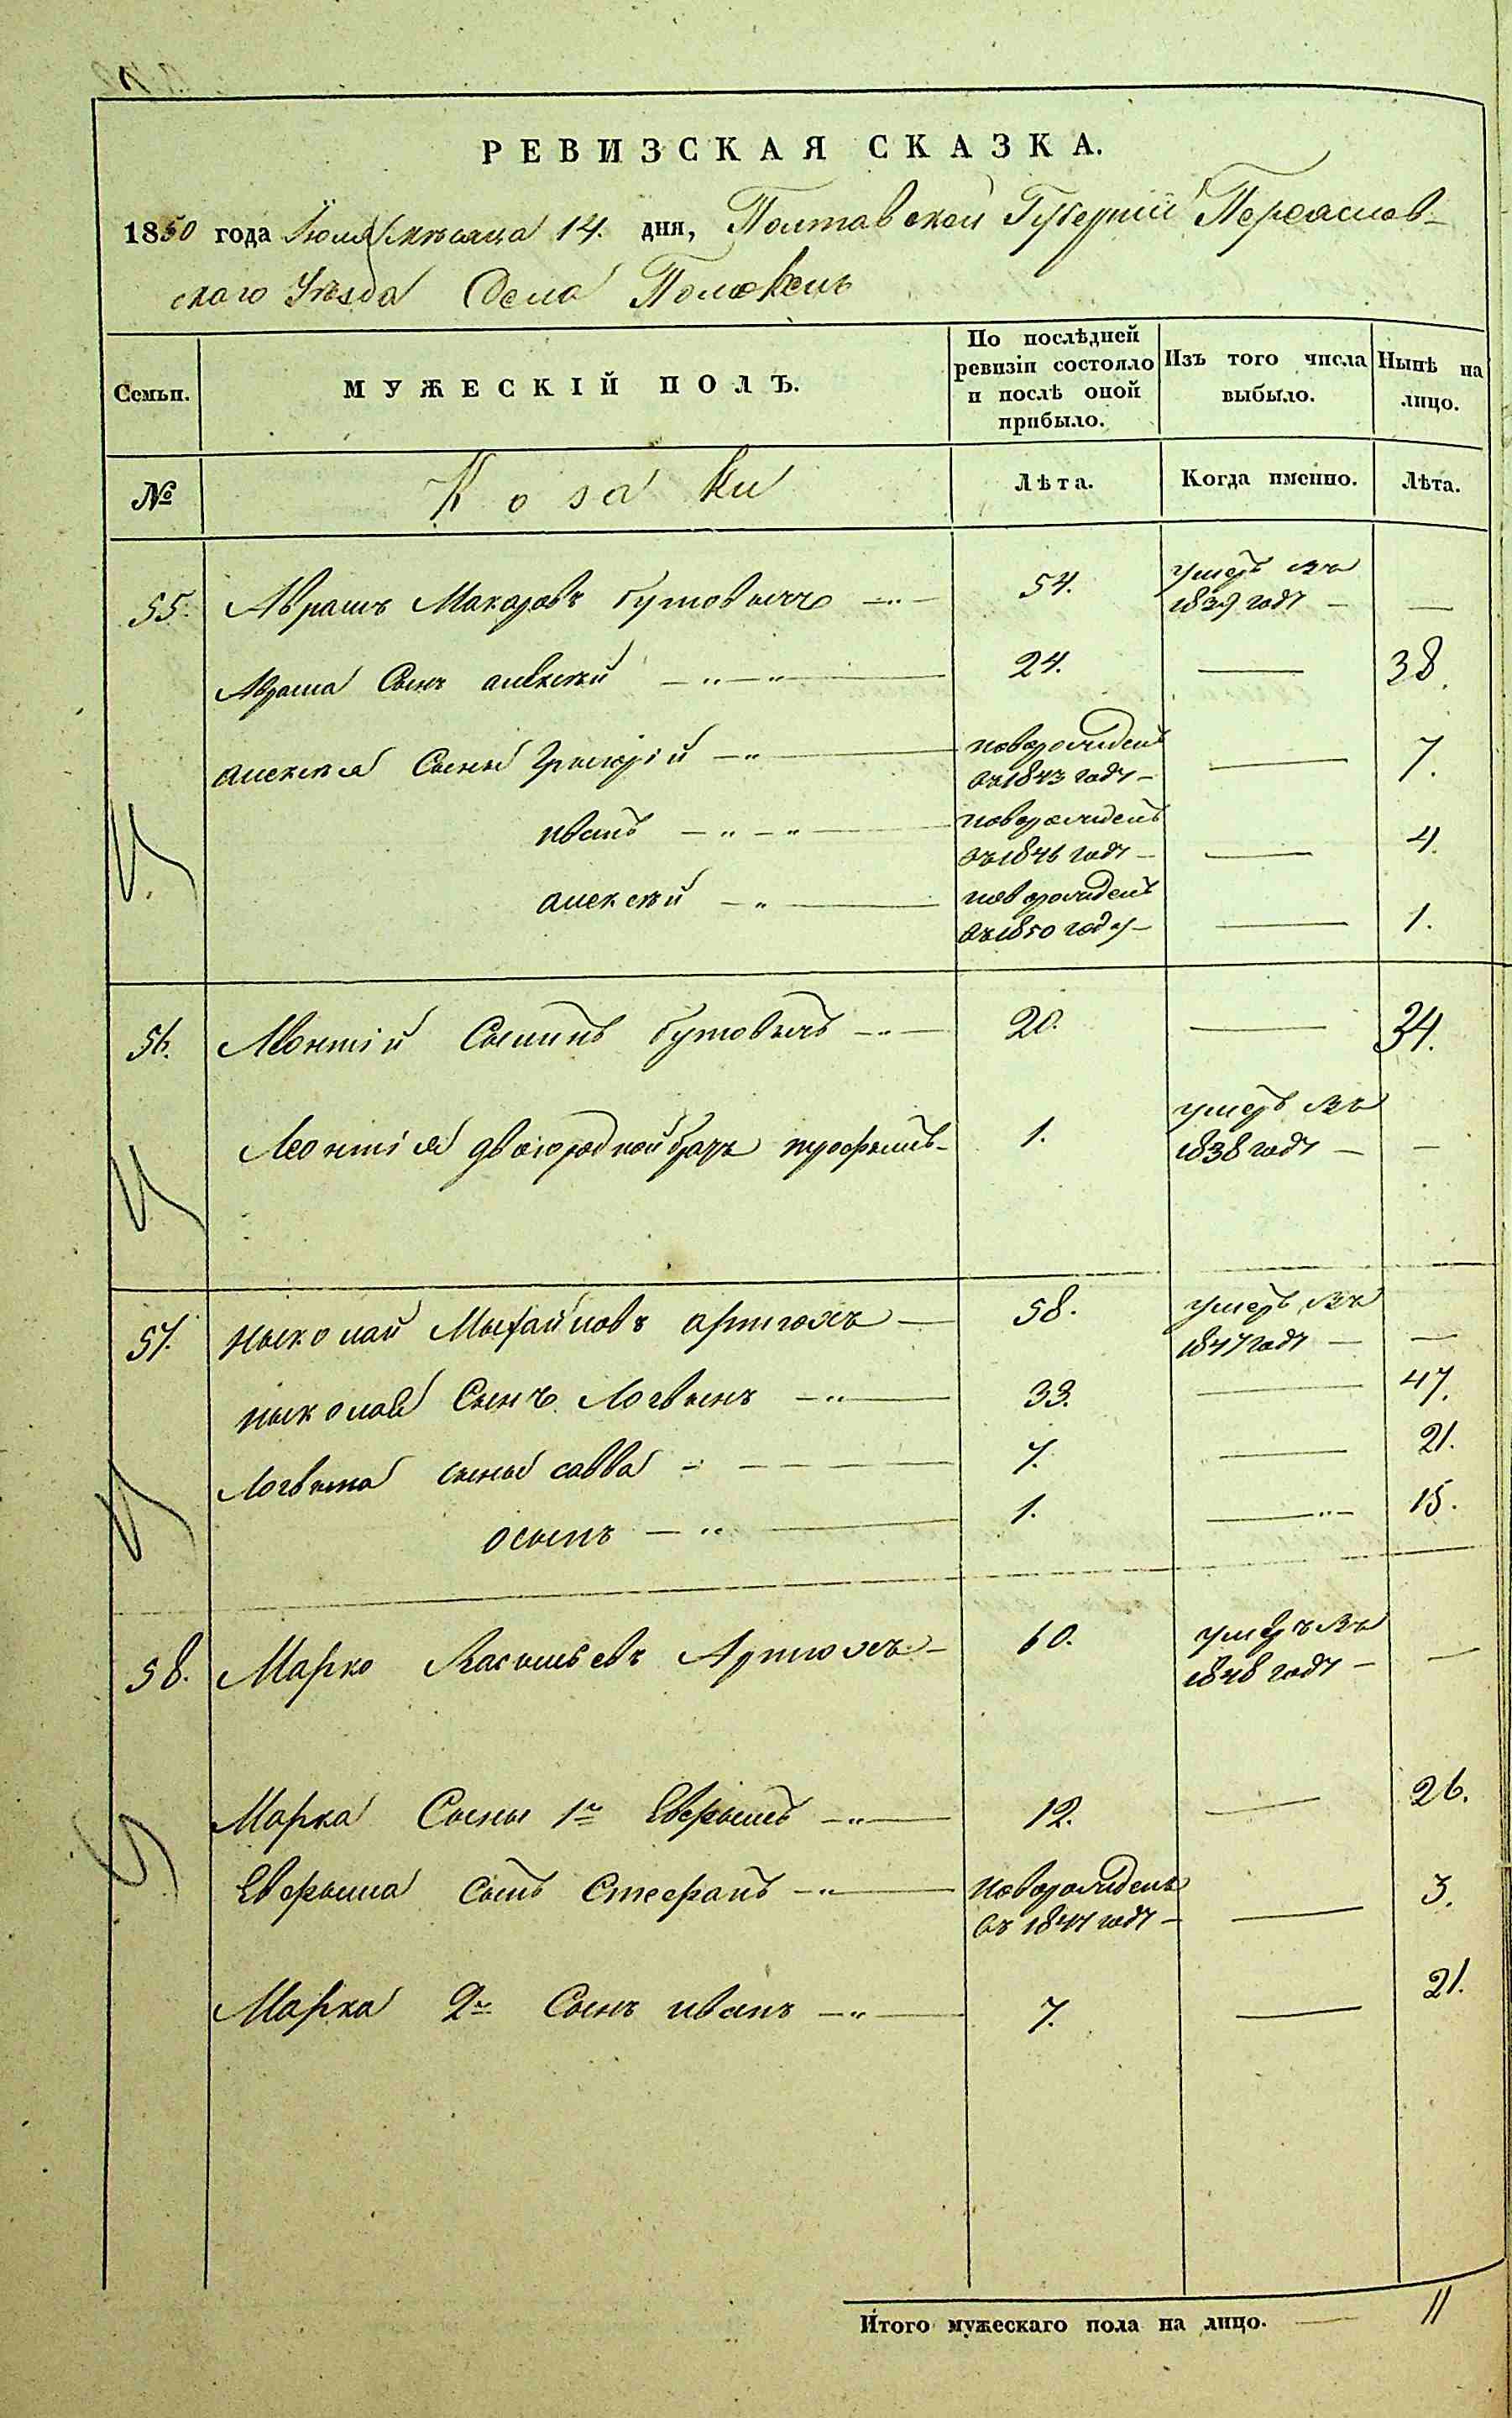 РЕВИЗСКАЯ СКАЗКА.
1850 года Июля мѣсяца 14. дня, Полтавской Губерніи Переяслов-
скаго Уѣзда Села Положеиъ
Семьи. МУЖЕСКІЙ ПОЛЪ. По послѣдней ревизіи состояло и послѣ оной прибыло. Изъ того числа выбыло. Нынѣ на лицо.
№ Козаки Лѣта. Когда именно. Лѣта.
55. Аврамъ Макаровъ Бутовычъ —"— 54. умеръ въ 1839 году — —
Аврама Сынъ алексѣй —"—"— 24. — 38.
алексѣя Сыны Григорій —"— новорожденъ въ 1843 году — — 7.
иванъ —"—"— новорожденъ въ 1846 году — — 4.
алексѣй —"— новорожденъ въ 1850 году — — 1.
56. Леонтій Сыминъ Бутовычъ —"— 20. — 34.
Леонтія двоюродной братъ трофымъ — 1. умеръ въ 1838 году — —
57. Ныколай Мыхайловъ артюхъ — 58. умеръ въ 1847 году — —
ныколая Сынъ Логвынъ —"— 33. — 47.
Логвына сыны савва - — — — 7. — 21.
осыпъ —"— 1. —"— 15.
58. Марко Васыльевъ Артюхъ — 60. умеръ въ 1848 году — —
Марка Сыны 1й Евфымъ —"— 12. — 26.
Евфыма Сынъ Стефанъ —"— новорожденъ въ 1847 году — — 3.
Марка 2й Сынъ иванъ —"— 7. — 21.
Итого мужескаго пола на лицо. — 11